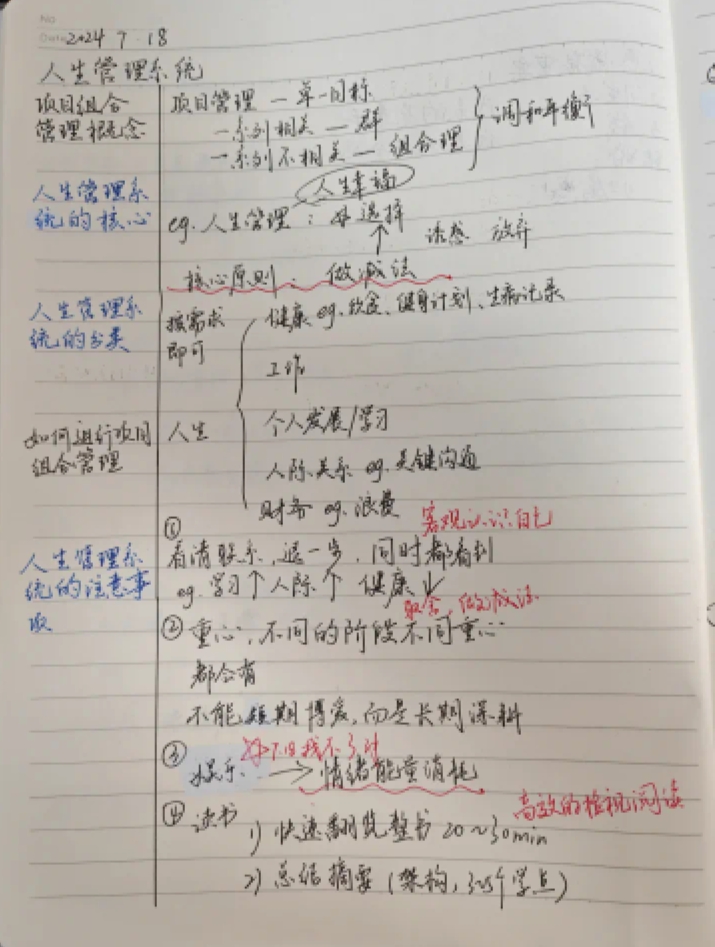 No
Date 2024 7 18
人生管理系统
项目组合
管理概念
项目管理 — 单一目标
一系列相关 — 群
一系列不相关 — 组合理
调和平衡
人生管理系
统的核心
人生幸福
eg. 人生管理 : 选择
↑ 诱惑 放弃
核心原则: 做减法
人生管理系
统的分类
按需求
即可
健康 eg. 饮食、健身计划、生病记录
工作
如何进行项目
组合管理
人生
个人发展/学习
人际关系 eg. 关键沟通
财务 eg. 浪费
客观认识自己
人生管理系
统的注意事
项
① 看清联系,退一步,同时都看到
eg. 学习↑人际↑ 健康↓
取舍,做减法
② 重心,不同的阶段不同重心
都会有
不能短期博爱,而是长期深耕
③ 娱乐 → 情绪能量消耗
高效的检视阅读
④ 读书 1) 快速翻览整书 20~30min
2) 总结摘要 (架构,3~5个学点)